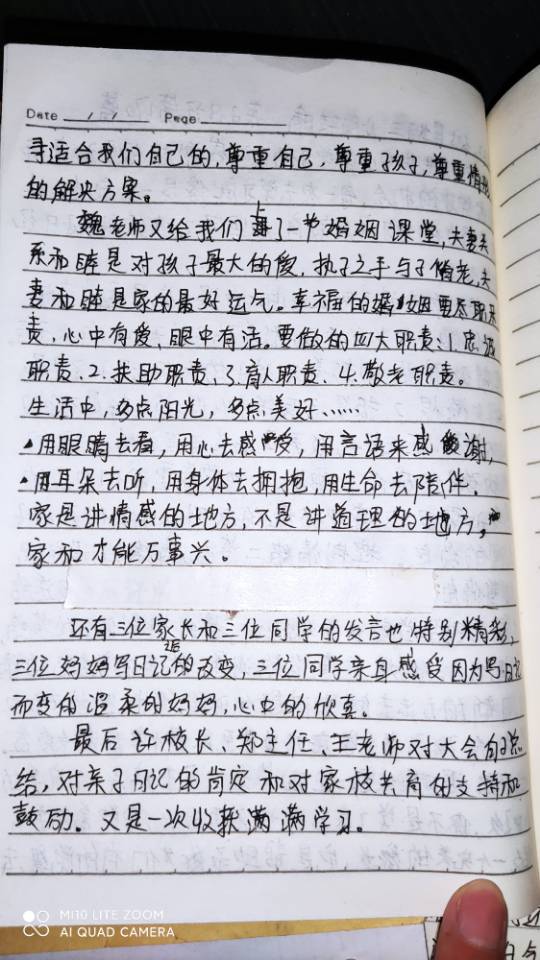 Date / / Page
寻适合我们自己的,尊重自己,尊重孩子,尊重情
的解决方案。
魏老师又给我们上了一节婚姻课堂,夫妻关
系和睦是对孩子最大的爱,执子之手与子偕老,夫
妻和睦是家的最好运气。幸福的婚姻要尽职尽
责,心中有爱、眼中有活。要做的四大职责:1.忠诚
职责、2.扶助职责、3.育人职责、4.敬老职责。
生活中,多点阳光,多点美好……
·用眼睛去看,用心去感受,用言语来感谢,
·用耳朵去听,用身体去拥抱,用生命去陪伴.
家是讲情感的地方,不是讲道理的地方,
家和才能万事兴。
还有三位家长和三位同学的发言也特别精彩,
三位妈妈写日记后的改变,三位同学亲自感受因为写日记
而变的温柔的妈妈,心中的欣喜。
最后许校长、郑主任、王老师对大会的总
结,对亲子日记的肯定和对家校共育的支持和
鼓励。又是一次收获满满学习。
MI 10 LITE ZOOM
AI QUAD CAMERA